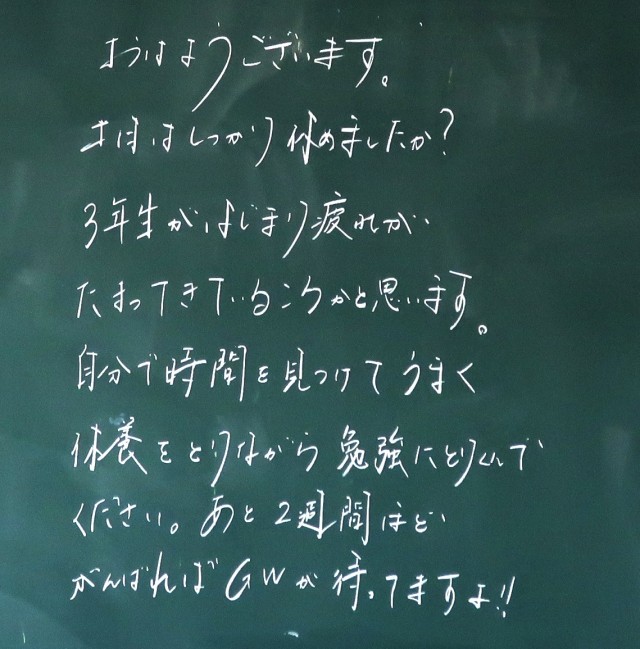 おはようございます。
土日はしっかり休めましたか?
3年生がはじまり疲れが
たまってきているころかと思います。
自分で時間を見つけてうまく
休養をとりながら勉強にとりくんで
ください。あと2週間ほど
がんばればGWが待ってますよ!!